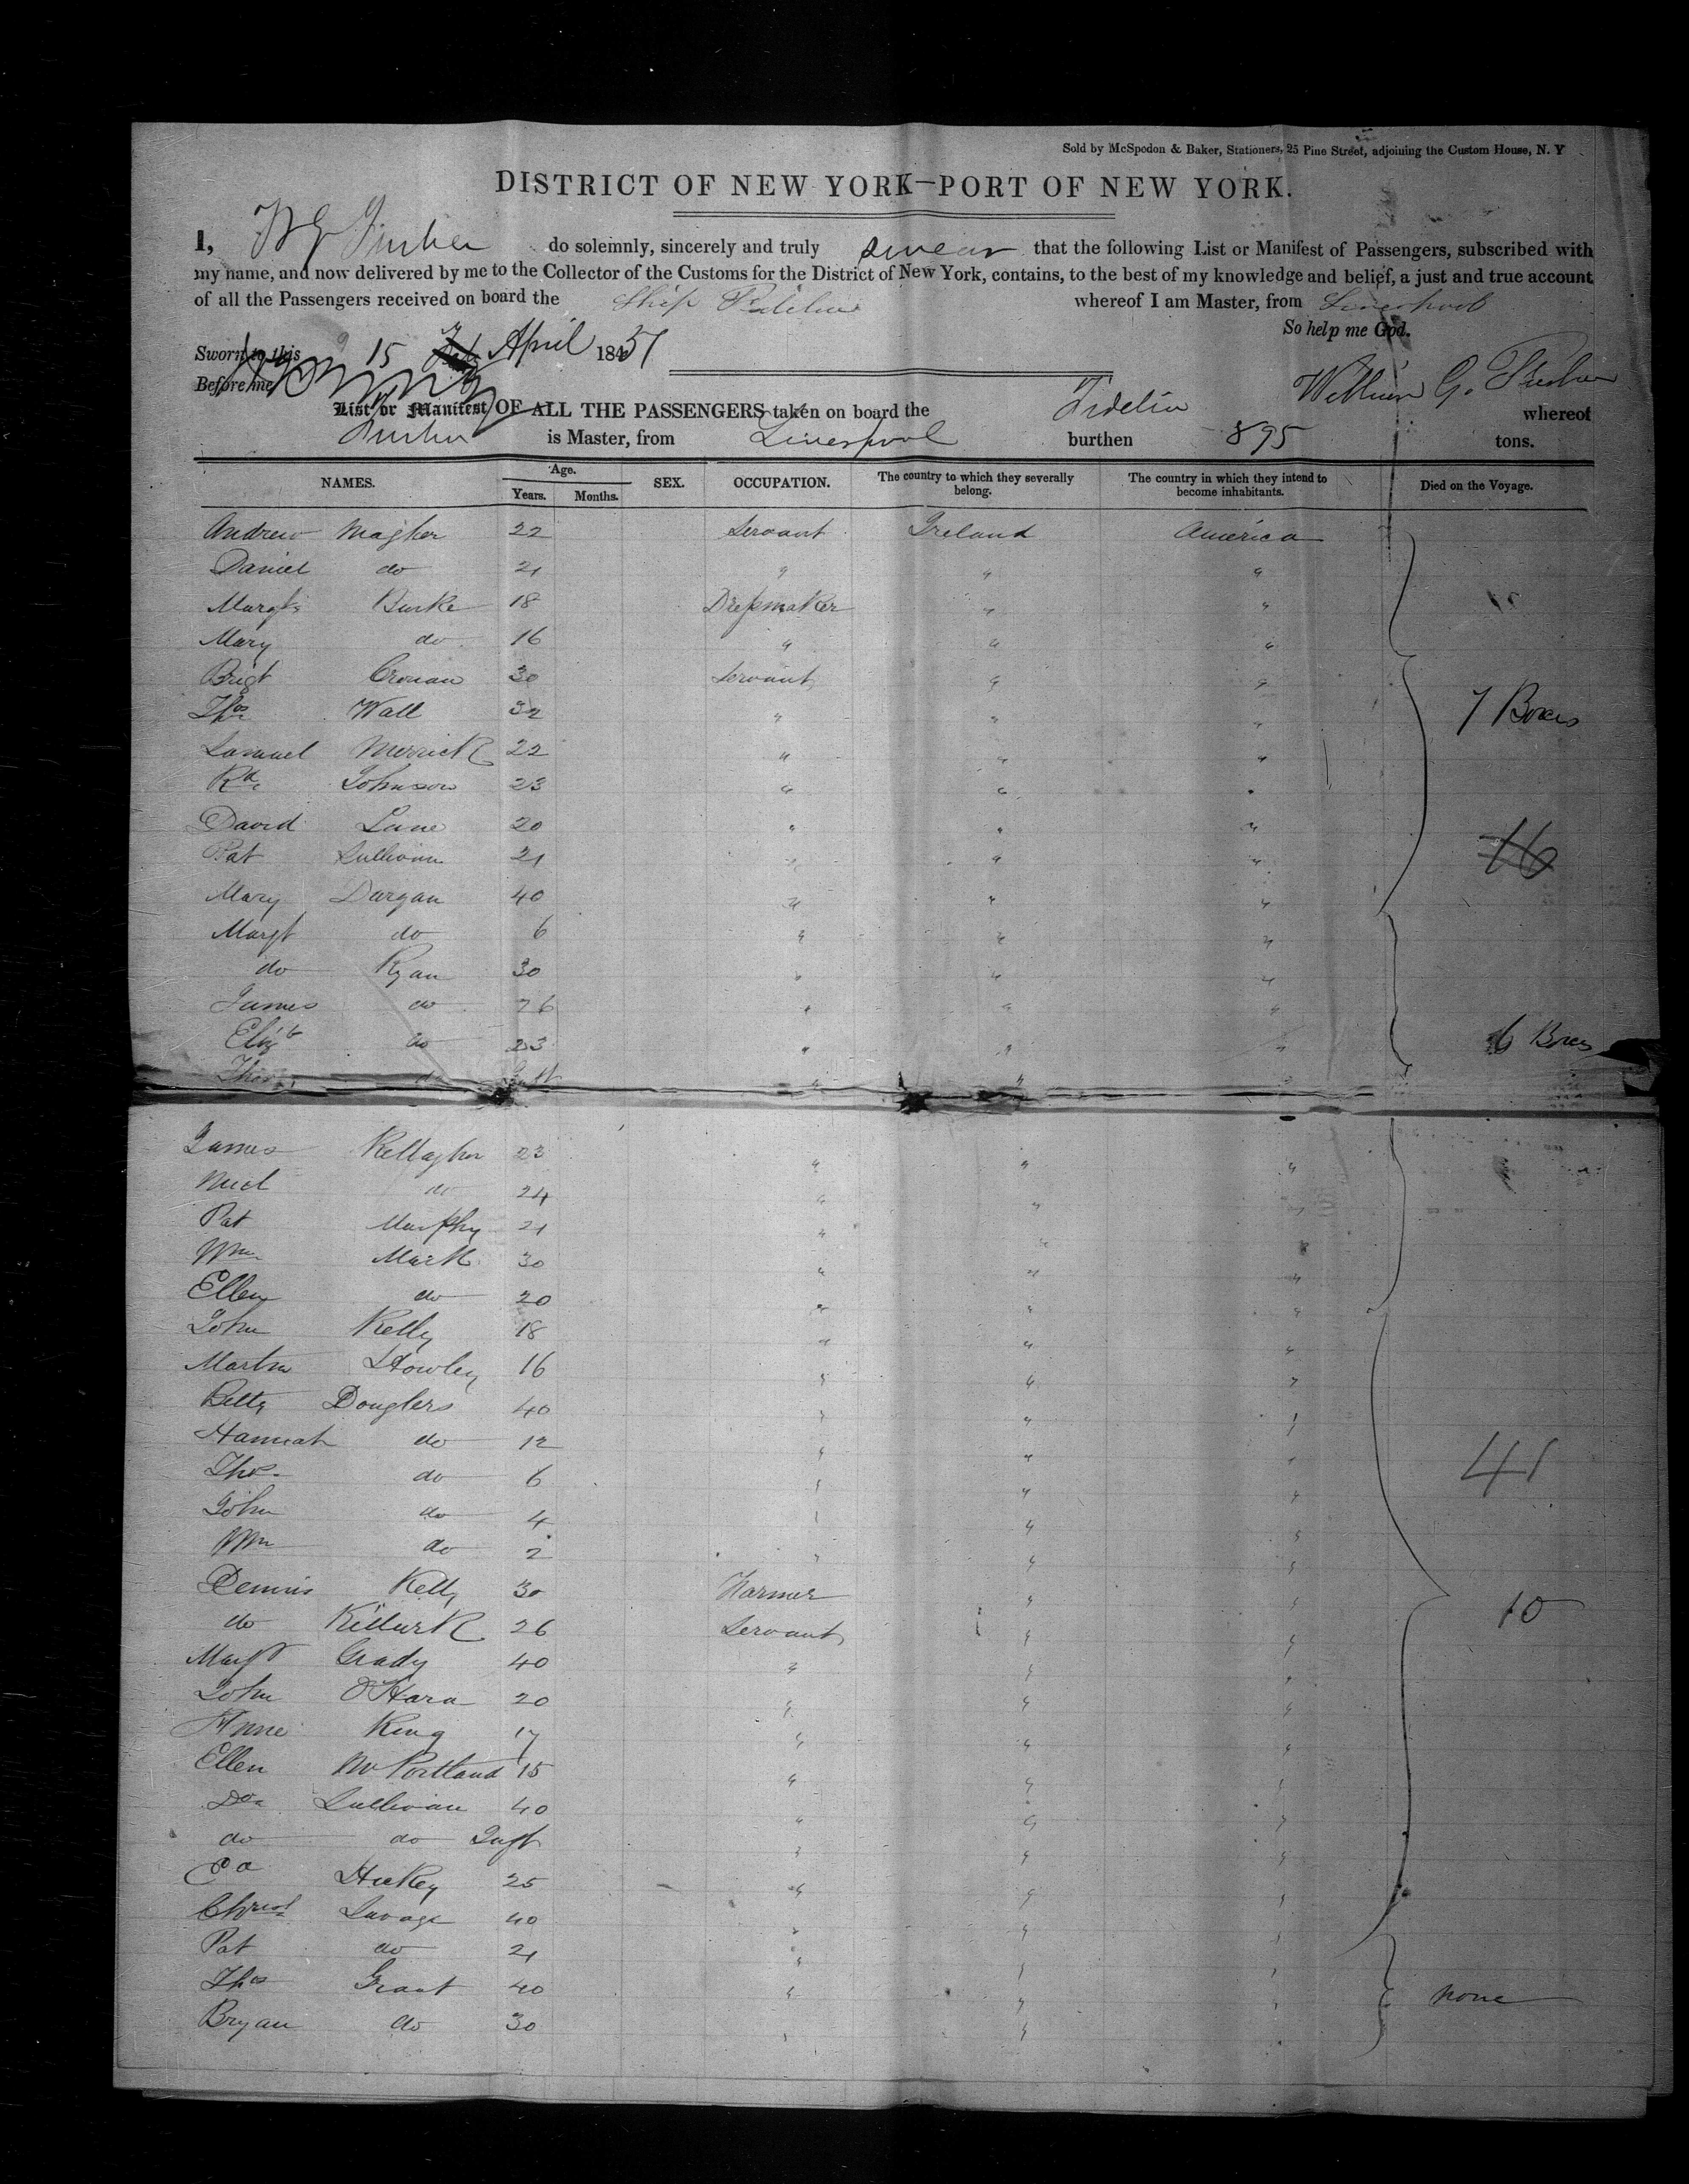 Sold by McSpedon & Baker, Stationers, 25 Pine Street, adjoining the Custom House, N. Y
DISTRICT OF NEW YORK—PORT OF NEW YORK.
I, W G Furber do solemnly, sincerely and truly swear that the following List or Manifest of Passengers, subscribed with
my name, and now delivered by me to the Collector of the Customs for the District of New York, contains, to the best of my knowledge and belief, a just and true account
of all the Passengers received on board the Ship Fidelia whereof I am Master, from Liverpool
So help me God.
Sworn to this 15 April 1851
Before me William G. Furber
List or Manifest OF ALL THE PASSENGERS taken on board the Fidelia whereof
Furber is Master, from Liverpool burthen 895 tons.
NAMES. Age. Years. Months. SEX. OCCUPATION. The country to which they severally belong. The country in which they intend to become inhabitants. Died on the Voyage.
Andrew Magher 22 Servant Ireland America
Daniel do 21 " " "
Margt Burke 18 Dressmaker " "
Mary do 16 " " "
Brigt Cronan 30 Servant " "
Thos Wall 32 " " " 7 Boxes
Samuel Merrick 22 " " "
Rd Johnson 23 " " "
David Lane 20 " " "
Pat Sullivan 21 " " " 16
Mary Dargan 40 " " "
Margt do 6 " " "
do Ryan 30 " " "
James do 26 " " "
Elizt do 23 " " " 6 Boxes
Thos do " " "
James Kellagher 23 " " "
Micl do 24 " " "
Pat Murphy 21 " " "
Wm Mark 30 " " "
Ellen do 20 " " "
John Kelly 18 " " "
Martin Howley 16 " " "
Betty Douglers 40 " " "
Hannah do 12 " " " 41
Thos do 6 " " "
John do 4 " " "
Wm do 2 " " "
Dennis Kelly 30 Farmer " " 10
do Killurk 26 Servant " "
Margt Grady 40 " " "
John O'Hara 20 " " "
Anne King 17 " " "
Ellen Mc Portland 15 " " "
Do Sullivan 40 " " "
do do Inft " " "
Ed Hickey 25 " " "
Christ Savage 40 " " "
Pat do 21 " " "
Thos Grant 40 " " " none
Bryan do 30 " " "